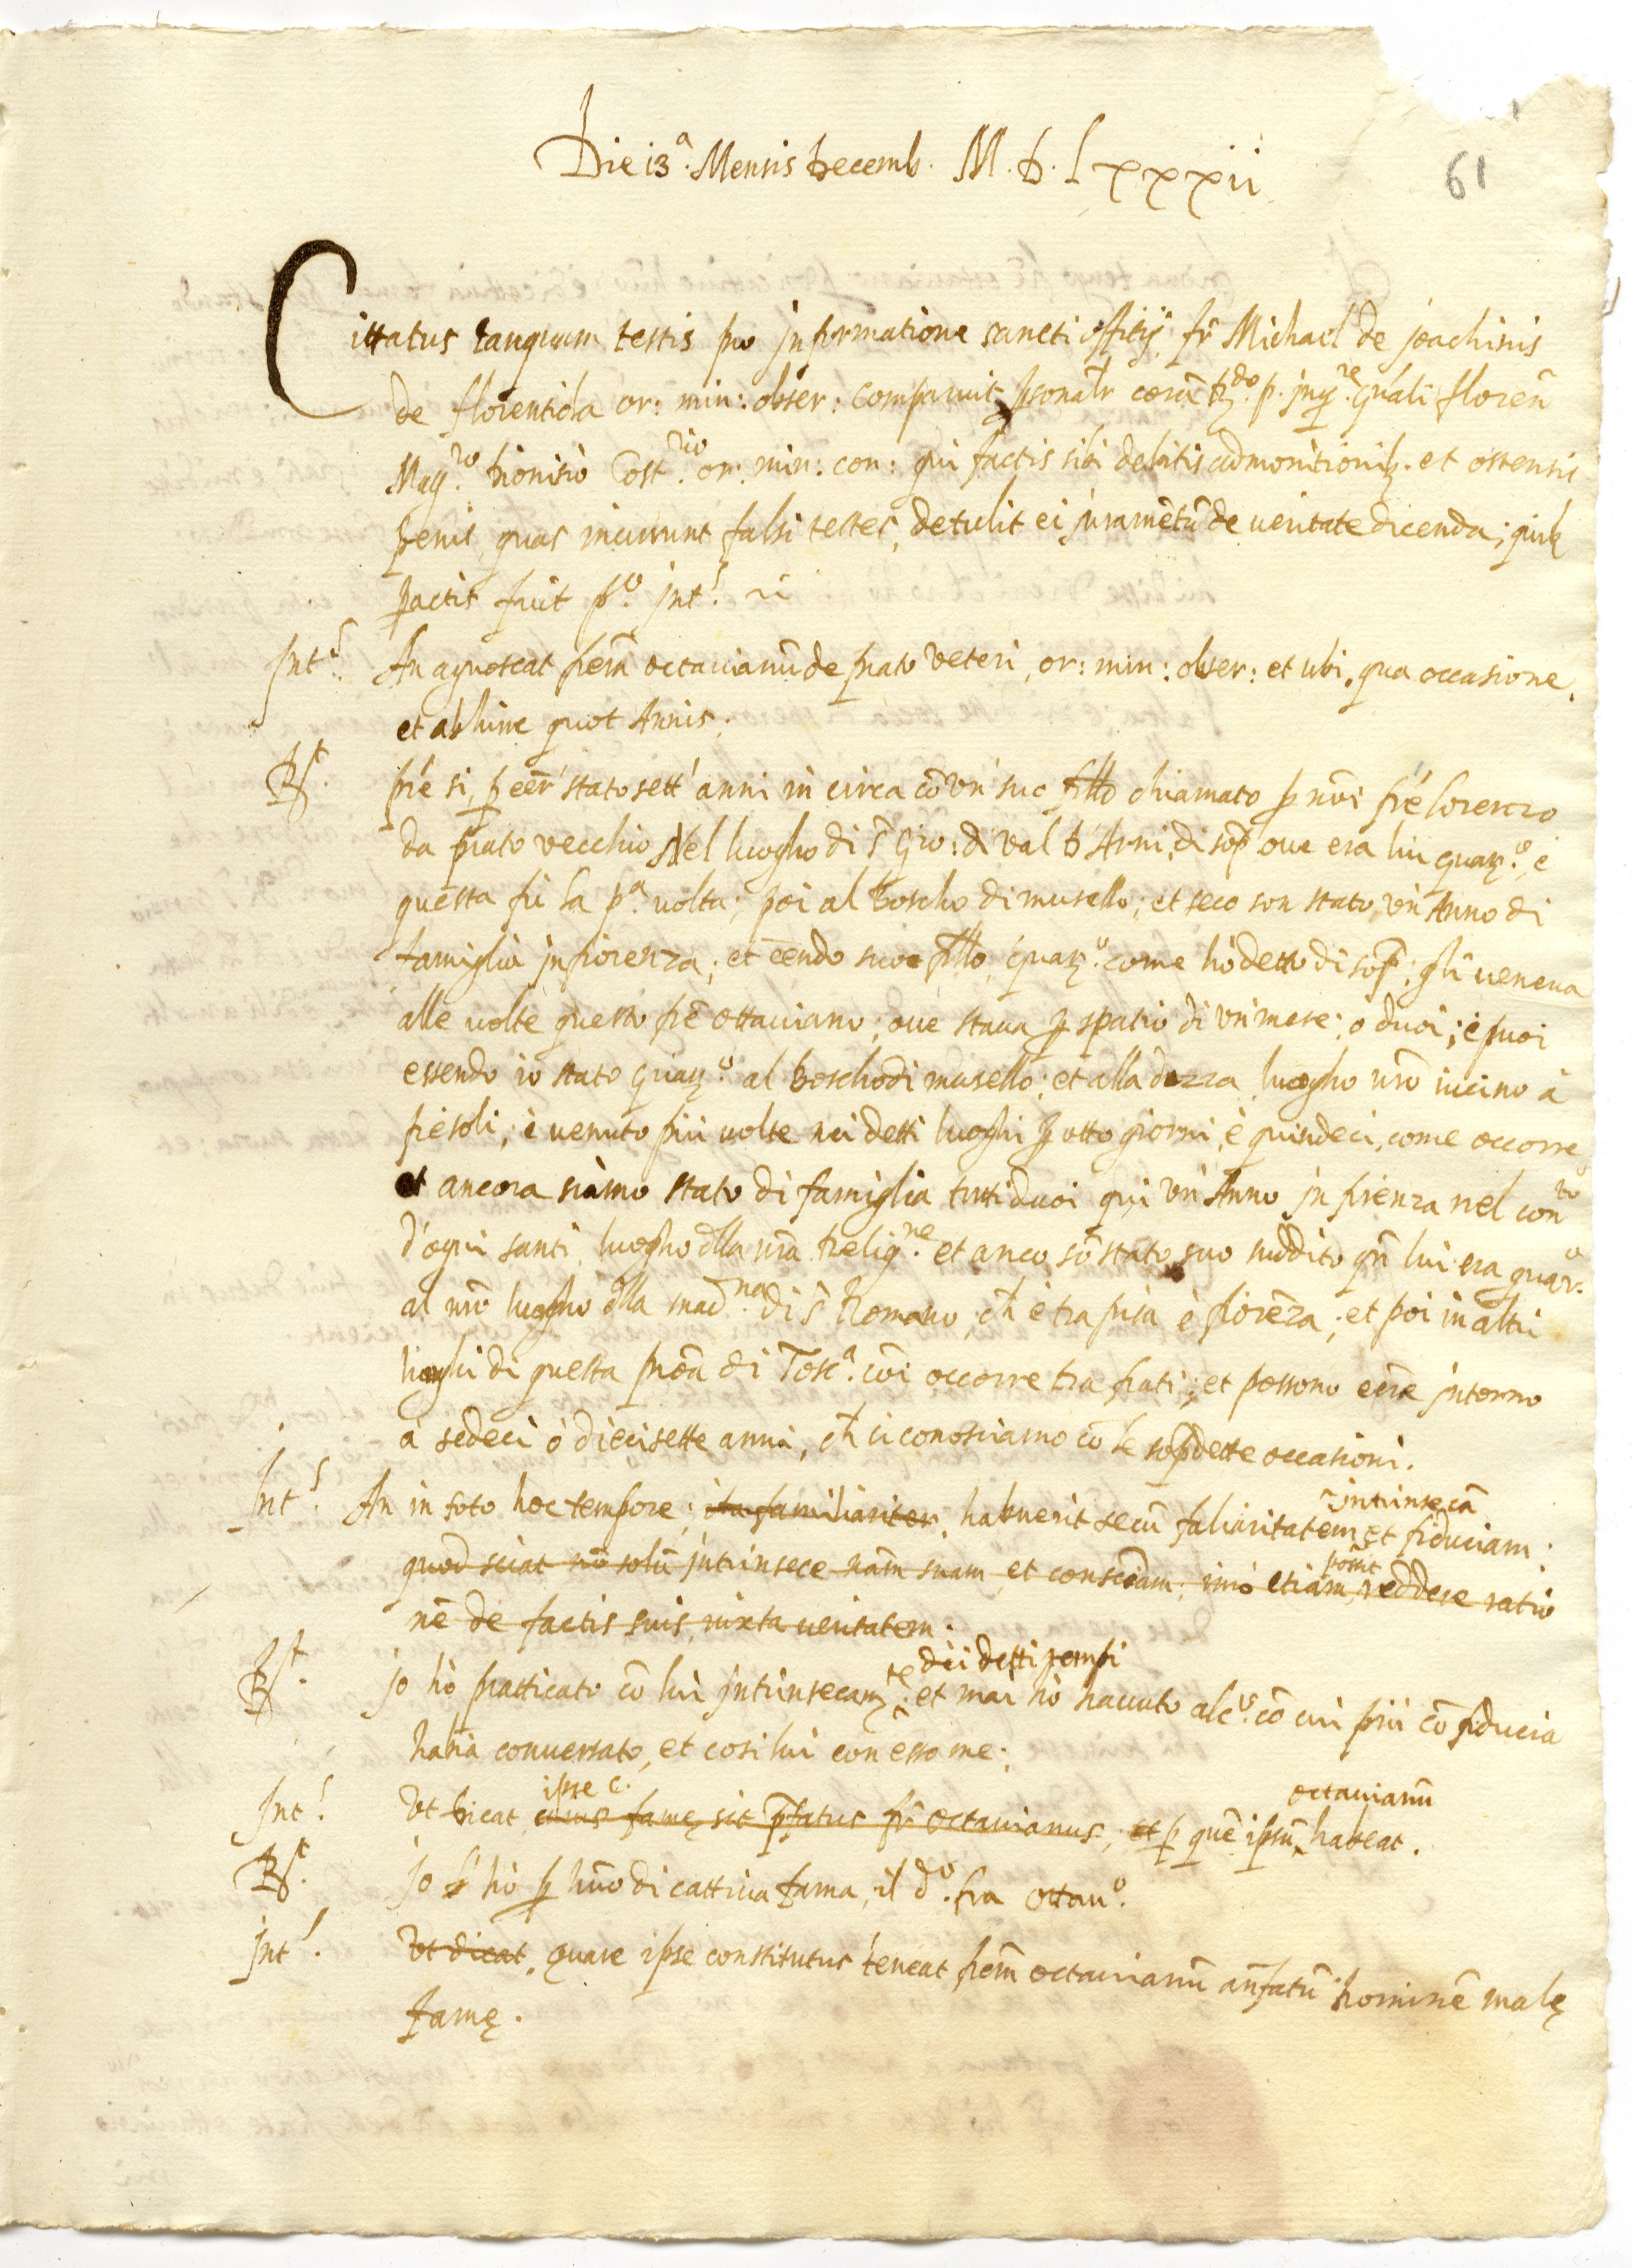 Die 13ª. Mensis Decemb. M.D.Lxxxii
61
Cittatus tanquam testis pro jnformatione sancti offitij, fr̃ Michael de joachinis
de florentiola or: min: obser: comparuit p̱sonalr̃ corã R.do p. jnq.re gñali floreñ
Mag.ro Dionisio Cost.rio or: min: con: qui factis sibi debitis admonitionibꝫ. et ostensis
penis, quas incurrunt falsi testes, detulit ei juramẽtũ de ueritate dicenda; quibꝫ
p̱actis fuit p.o jnt.s
Jnt.s An agnoscat frẽm octauianũ de prato veteri, or: min: obser: et ubi, qua occasione,
et ab hinc quot Annis.
Rt. p̱ré si, p̱ eẽr stato sett'anni in circa cõ vn' suo frĩlo chiamato p̱ nõi fré lorenzo
da prato vecchio Nel luogho di S. Gio: di Val D'Arni, di sop̱ oue era lui guar.o, e
questa fù la p.a uolta; poi al Boscho di musello; et seco son stato vn Anno di
famiglia jn fiorenza; et eẽndo suo frĩlo, guar.o come hò detto di sop̱; gli veneua
alle uolte questo fré ottauiano; oue staua p̱ spatio di vn mese, o duoi; e puoi
essendo io stato guar.o al Boscho di musello; et alla dozza, luogho nrõ uicino à
fiesoli, è uenuto piu uolte nei detti luoghi p̱ otto giorni, è quindeci, come occorre
et ancora siamo stato di famiglia tutti duoi qui vn' Anno jn firenza nel con.to
d'ogni santi, luogho dlla nrã Relig.ne et anco sõ stato suo suddito qñ lui era guar.o
al nrõ luogho dlla mad.na di S. Romano, ch̃ è tra pisa è fiorẽza; et poi in altri
luoghi di questa proũa di Tosc.a cõi occorre tra frati; et possono eẽre jntorno
à sedeci ò diecisette anni, ch̃ ci conosciamo cõ le sop̱dette occasioni.
Jnt.s An in toto hoc tempore, ita familiariter, habuerit secũ faliaritatem intrinsecã et fiduciam:
quod sciat nõ solũ jntrinsece nam̃ suam et conscĩam; imò etiam possit reddere ratio
nẽ de factis suis juxta ueritatem.
Rt. jo hò pratticato cõ lui jntrinsecam.te dèi detti tempi et mai hò hauuto alc.o cõ cui più cõ fiducia
habia conuersato, et cosi lui con esso me.
Jnt.s Vt Dicat ipse c. cuius famę sit p̱fatus fr̃ Octauianus, et p̱ quẽ ipsũ octauianũ habeat.
Rt. Jo l'hò p̱ huõ di cattiua fama, il d.o fra ottau.o
jnt.s Vt dicat, quare ipse constitutus teneat frẽm octauianũ añfatũ hominẽ malę
famę.